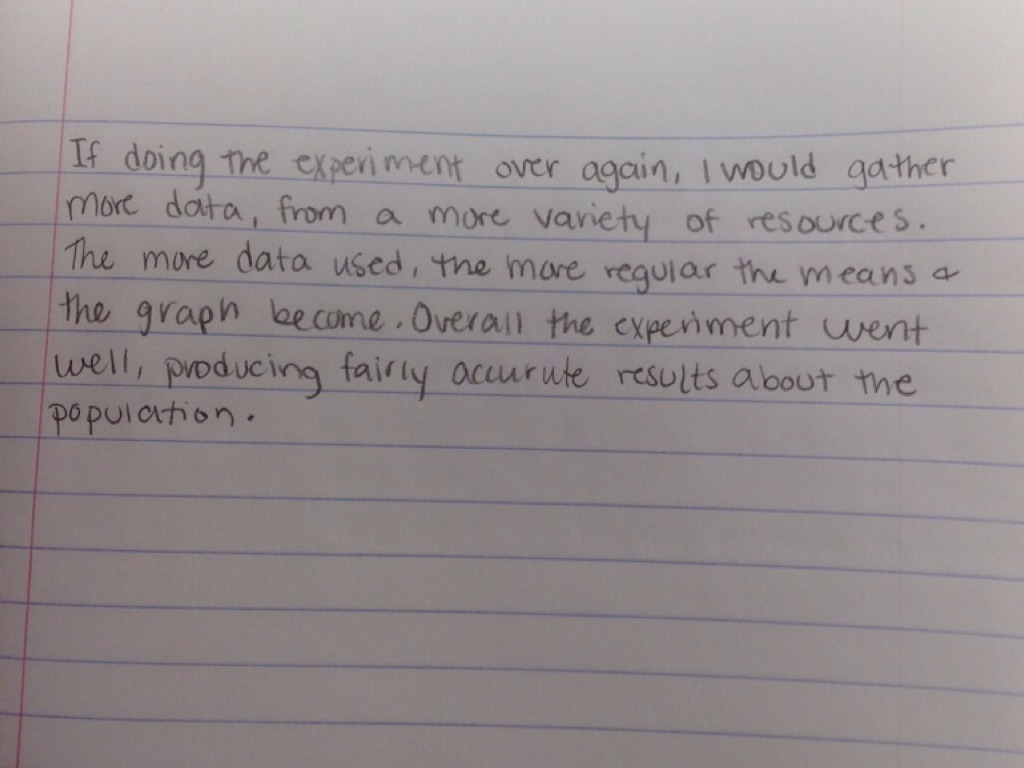 If doing the experiment over again, I would gather
more data, from a more variety of resources.
The more data used, the more regular the means &
the graph become. Overall the experiment went
well, producing fairly accurute results about the
population.